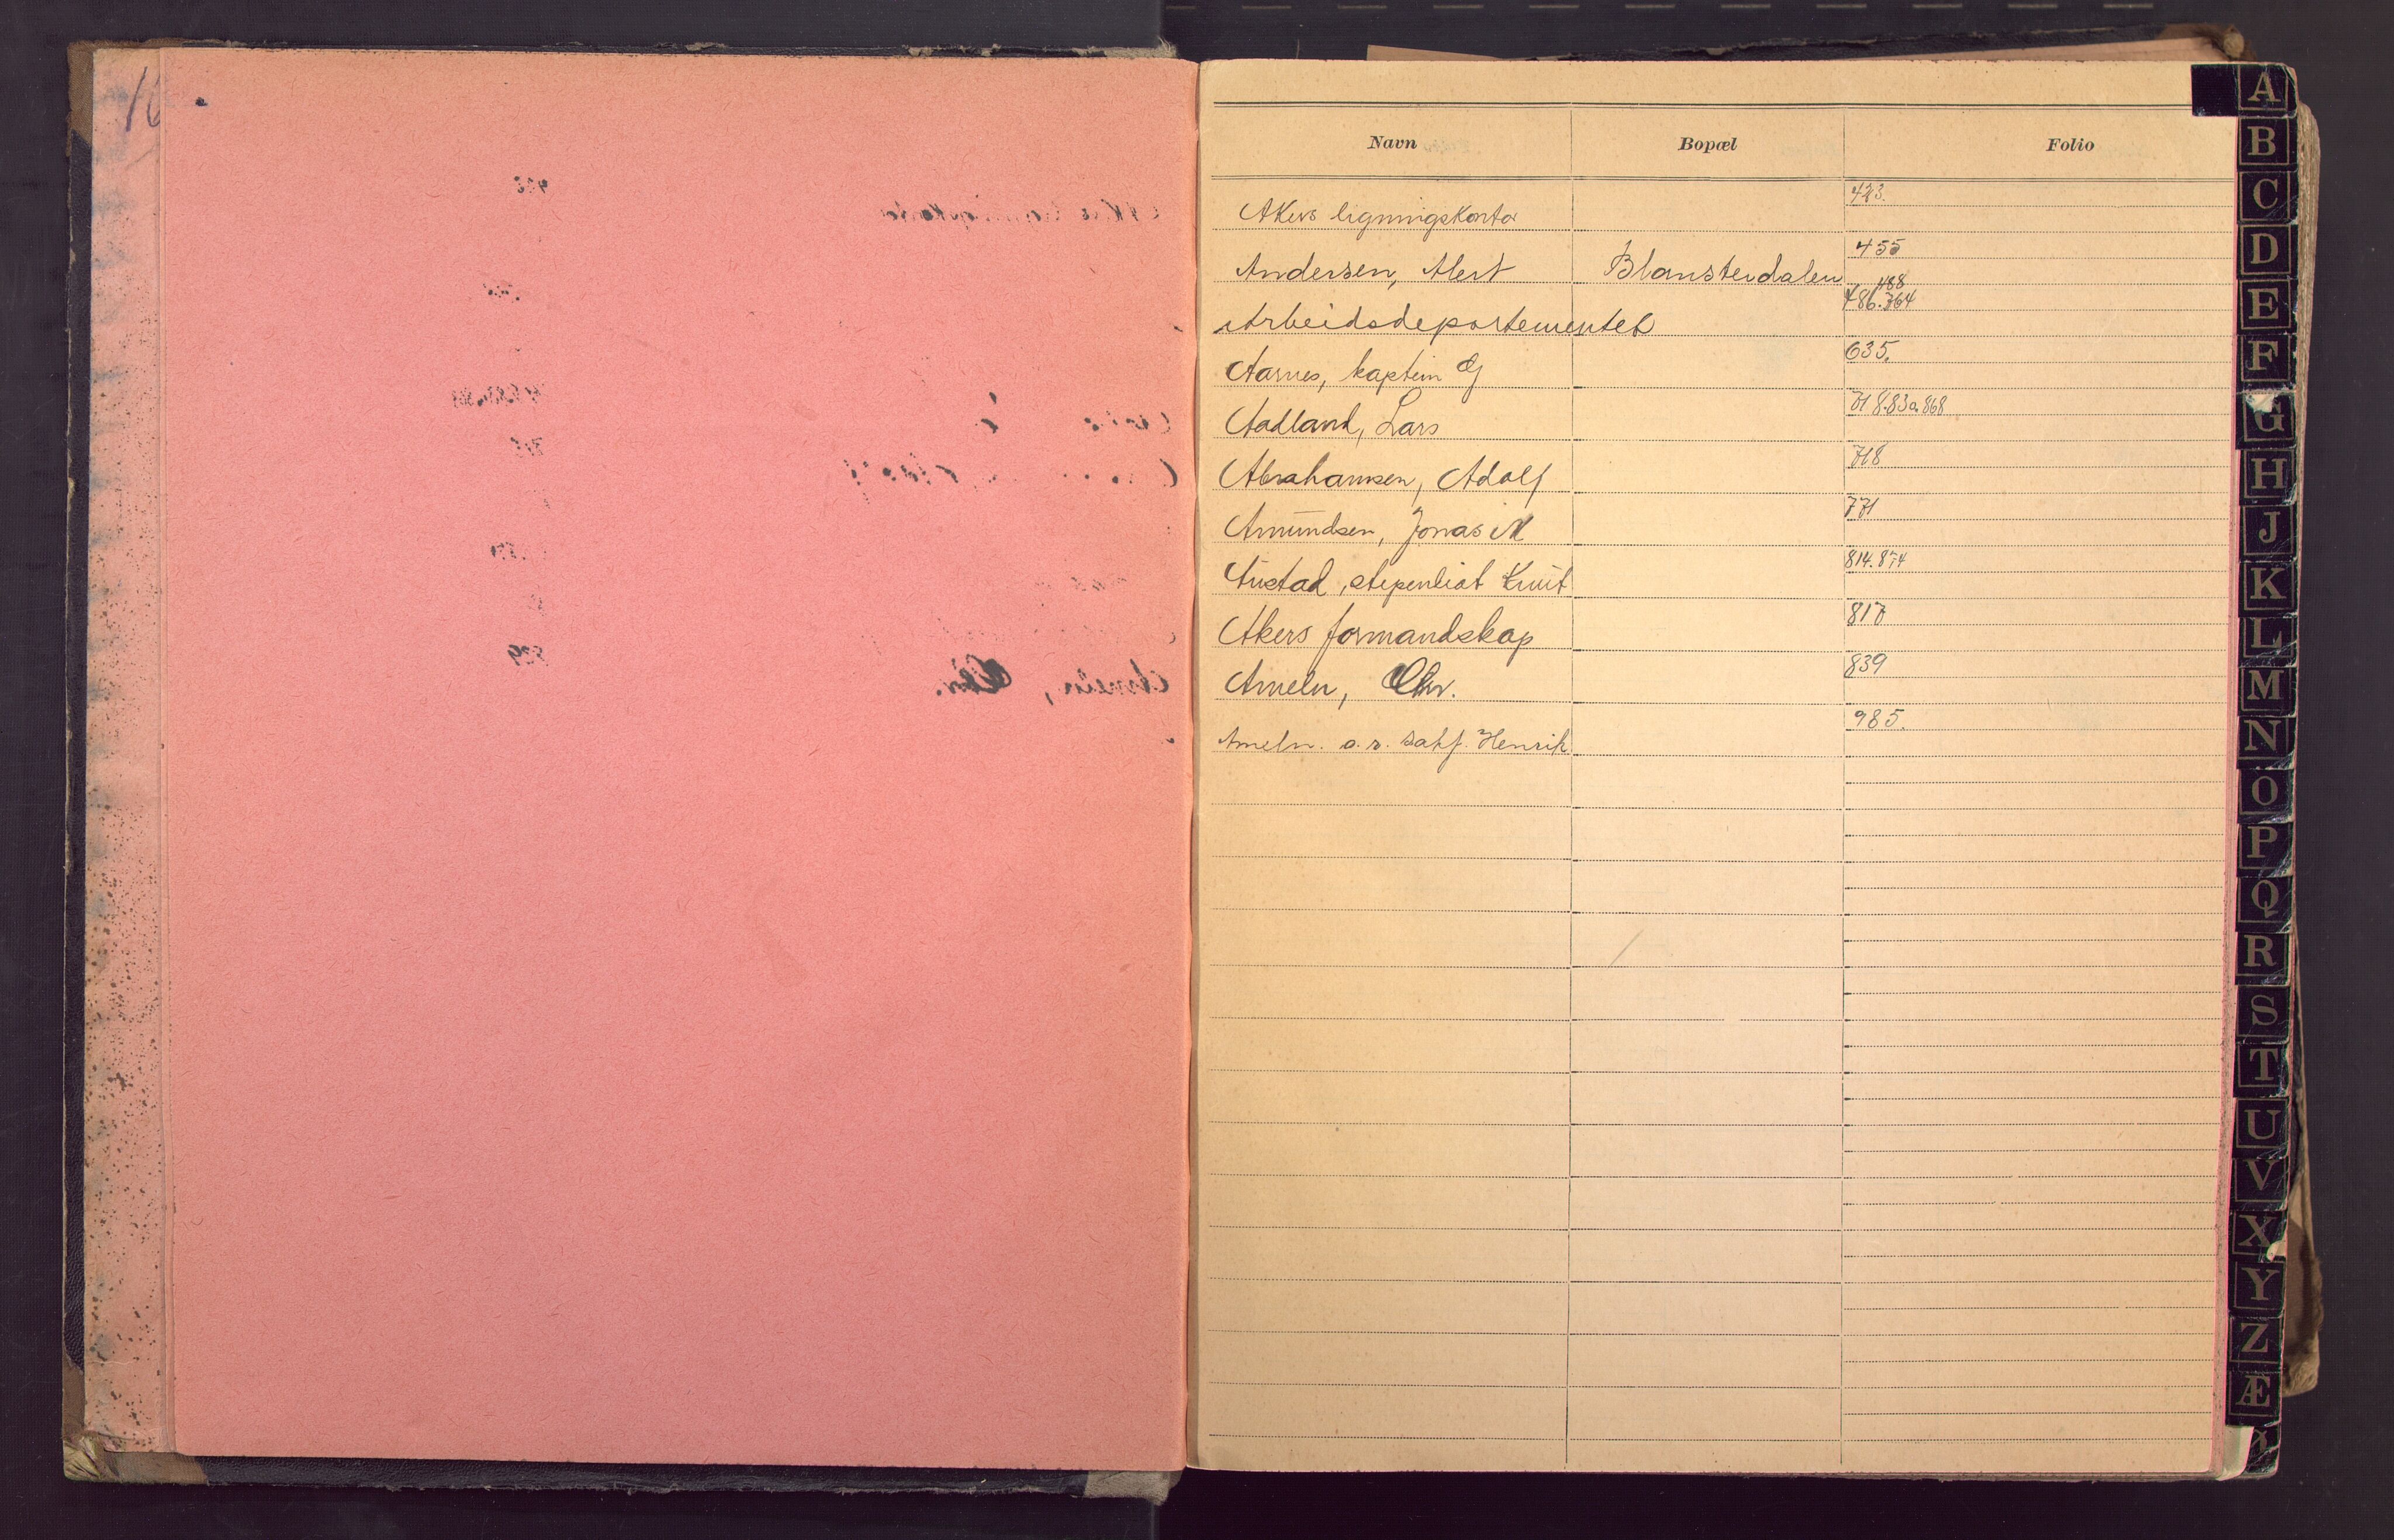 16
Navn Bopæl Folio
Akers ligningskontor 423.
Andersen, Alert Blomsterdalen 455
Arbeidsdepartementet 486.488 764
Aarnes, kaptein Og 635.
Aadland, Lars 718.830.868
Abrahamsen, Adolf 718
Amundsen, Jonas M 771
Austad, stipendiat Knut 814.874
Akers formandskap 817
Ameln, Chr. 839
Ameln. o.r. sakf. Henrik 985.
A
B
C
D
E
F
G
H
J
K
L
M
N
O
P
Q
R
S
T
U
V
X
Y
Z
Æ